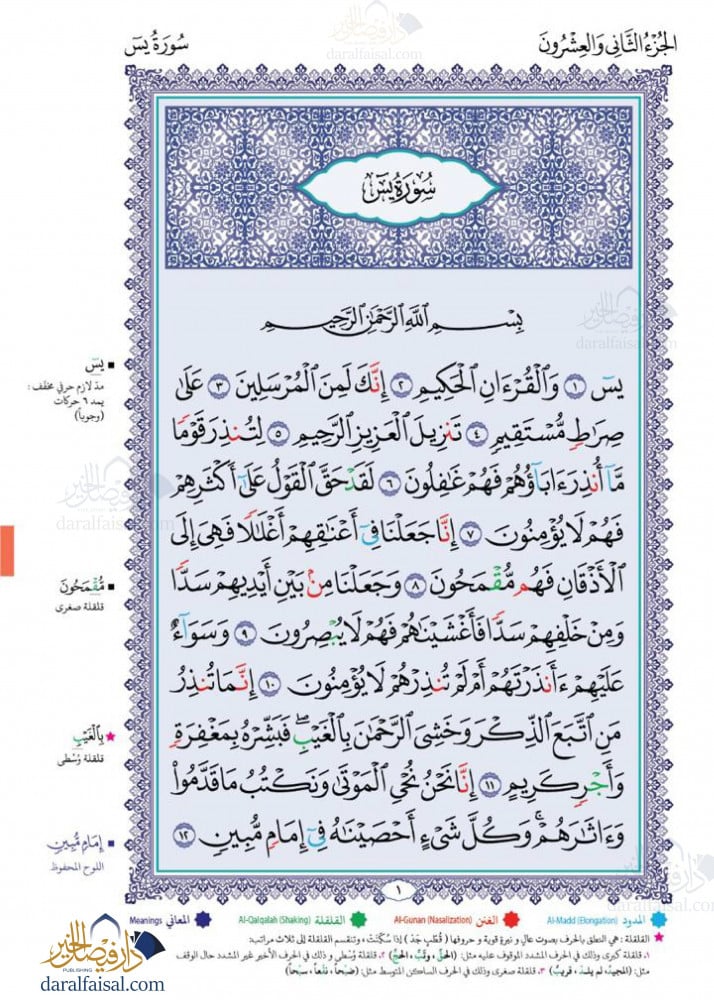 دار فيصل الخير
daralfaisal.com
الجُزْءُ الثَّانِي وَالعِشْرُونَ
سُورَةُ يسٓ
سُورَةُ يسٓ
بِسْمِ اللَّهِ الرَّحْمَٰنِ الرَّحِيمِ
يسٓ ١ وَالْقُرْءَانِ الْحَكِيمِ ٢ إِنَّكَ لَمِنَ الْمُرْسَلِينَ ٣ عَلَىٰ
صِرَاطٍ مُّسْتَقِيمٍ ٤ تَنزِيلَ الْعَزِيزِ الرَّحِيمِ ٥ لِتُنذِرَ قَوْمًا
مَّآ أُنذِرَ ءَابَآؤُهُمْ فَهُمْ غَٰفِلُونَ ٦ لَقَدْ حَقَّ الْقَوْلُ عَلَىٰٓ أَكْثَرِهِمْ
فَهُمْ لَا يُؤْمِنُونَ ٧ إِنَّا جَعَلْنَا فِىٓ أَعْنَٰقِهِمْ أَغْلَٰلًا فَهِىَ إِلَى
الْأَذْقَانِ فَهُم مُّقْمَحُونَ ٨ وَجَعَلْنَا مِنۢ بَيْنِ أَيْدِيهِمْ سَدًّا
وَمِنْ خَلْفِهِمْ سَدًّا فَأَغْشَيْنَٰهُمْ فَهُمْ لَا يُبْصِرُونَ ٩ وَسَوَآءٌ
عَلَيْهِمْ ءَأَنذَرْتَهُمْ أَمْ لَمْ تُنذِرْهُمْ لَا يُؤْمِنُونَ ١٠ إِنَّمَا تُنذِرُ
مَنِ اتَّبَعَ الذِّكْرَ وَخَشِىَ الرَّحْمَٰنَ بِالْغَيْبِ ۖ فَبَشِّرْهُ بِمَغْفِرَةٍ
وَأَجْرٍ كَرِيمٍ ١١ إِنَّا نَحْنُ نُحْىِ الْمَوْتَىٰ وَنَكْتُبُ مَا قَدَّمُوا۟
وَءَاثَٰرَهُمْ ۚ وَكُلَّ شَىْءٍ أَحْصَيْنَٰهُ فِىٓ إِمَامٍ مُّبِينٍ ١٢
يسٓ
مدّ لازم حرفي مخفّف :
يمد ٦ حركات
(وجوباً)
مُّقْمَحُونَ
قلقلة صغرى
بِالْغَيْبِ
قلقلة وُسْطى
إِمَامٍ مُّبِينٍ
اللوح المحفوظ
١
المدود Al-Madd (Elongation) الغنن Al-Gunan (Nasalization) القلقلة Al-Qalqalah (Shaking) المعاني Meanings
القلقلة : هي النطق بالحرف بصوت عالٍ و نبرة قوية و حروفها ( قُطْبُ جَدّ ) إذا سُكِّنَتْ ، وتنقسم القلقلة إلى ثلاث مراتب:
١. قلقلة كبرى وذلك في الحرف المشدد الموقوف عليه مثل: (الحقّ ، وتبّ ، الحجّ) ٢. قلقلة وسطى و ذلك في الحرف الأخير غير المشدد حال الوقف
مثل: (المجيدْ، لم يلدْ، قريبْ) ٣. قلقلة صغرى وذلك في الحرف الساكن المتوسط مثل: (ضبْحاً ، نقْعاً ، سبْحاً)
دار فيصل الخير
PUBLISHING
daralfaisal.com